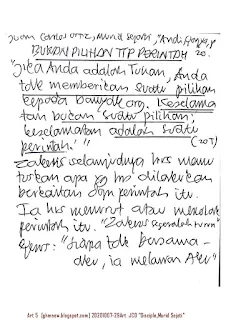 Juan Carlos Ortiz, Murid Sejati,
BUKAN PILIHAN TTP PERINTAH 20.
"Jika Anda adalah Tuhan, Anda
tdk memberikan suatu pilihan
kepada banyak org. Keselama
tan bukan suatu pilihan;
keselamatan adalah suatu
perintah."
(207)
selanjutnya hrs menu
turkan apa yg hrs dilakukan
berkaitan dgn perintah itu.
Ia hrs menurut atau menolak
perintah itu.
"Siapa tdk bersama-
Ku, ia melawan Aku"
Art 5 [gkmnnw.blogspot.com] 20201007-28Art JCO "Disciple,Murid Sejati"